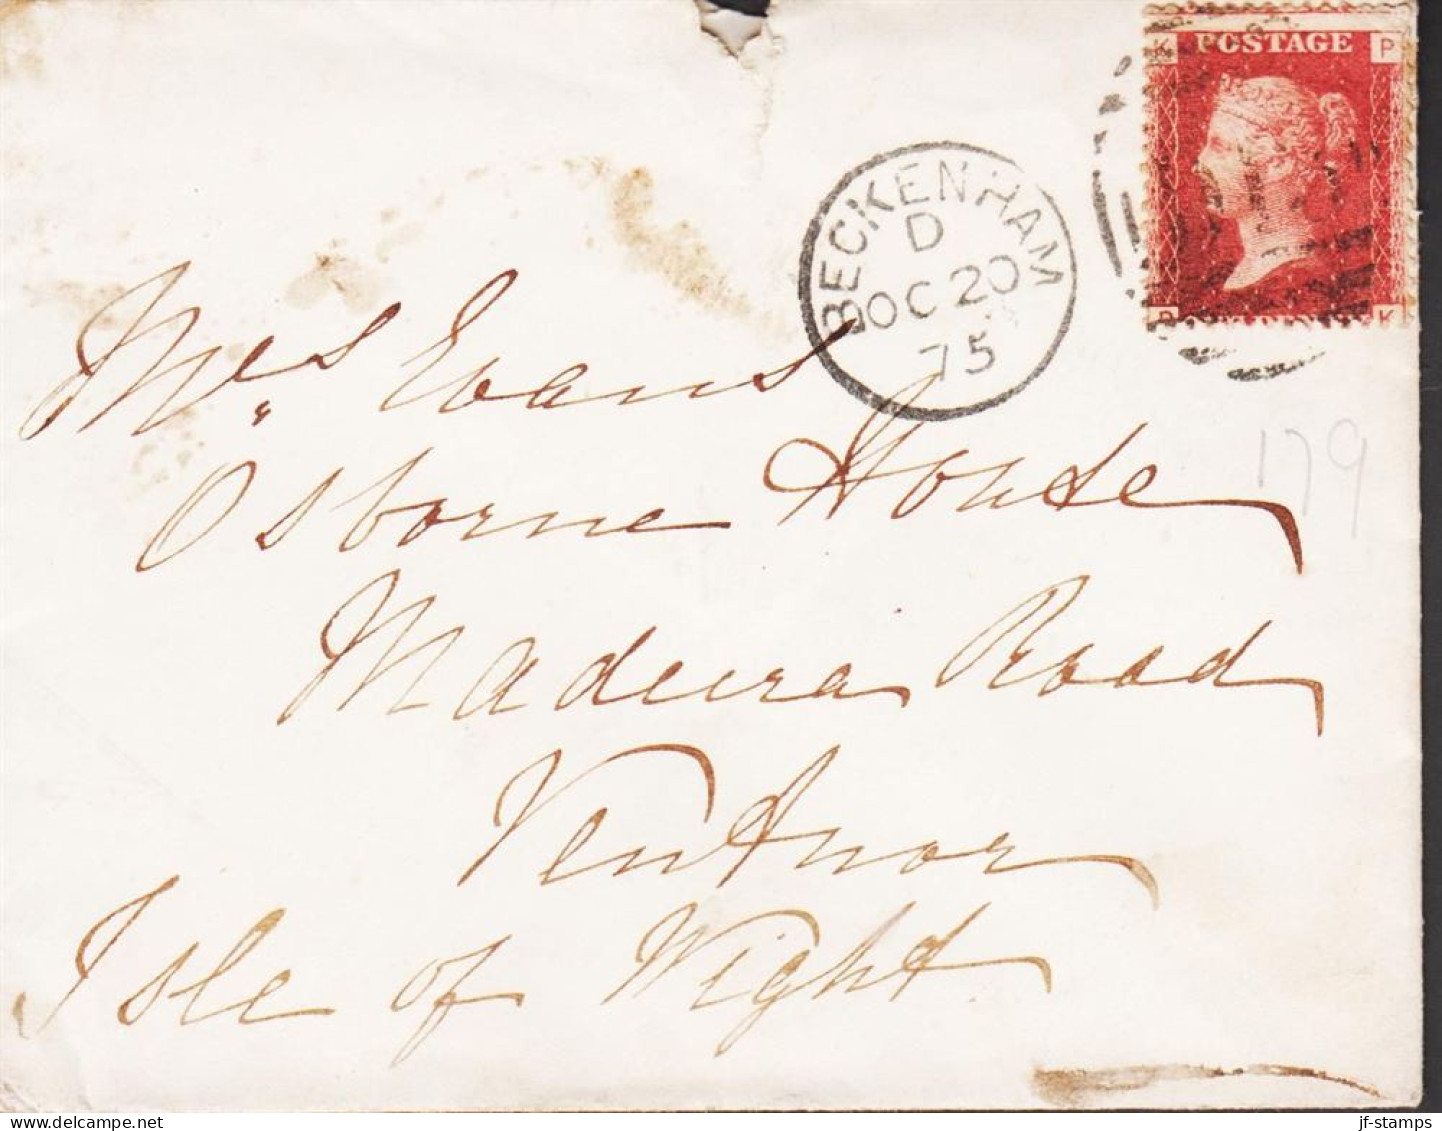 K POSTAGE P
P K
BECKENHAM
D
OC 20
75
Mrs Evans
Osborne House
Madeira Road
Ventnor
Isle of Wight
179
jf-stamps